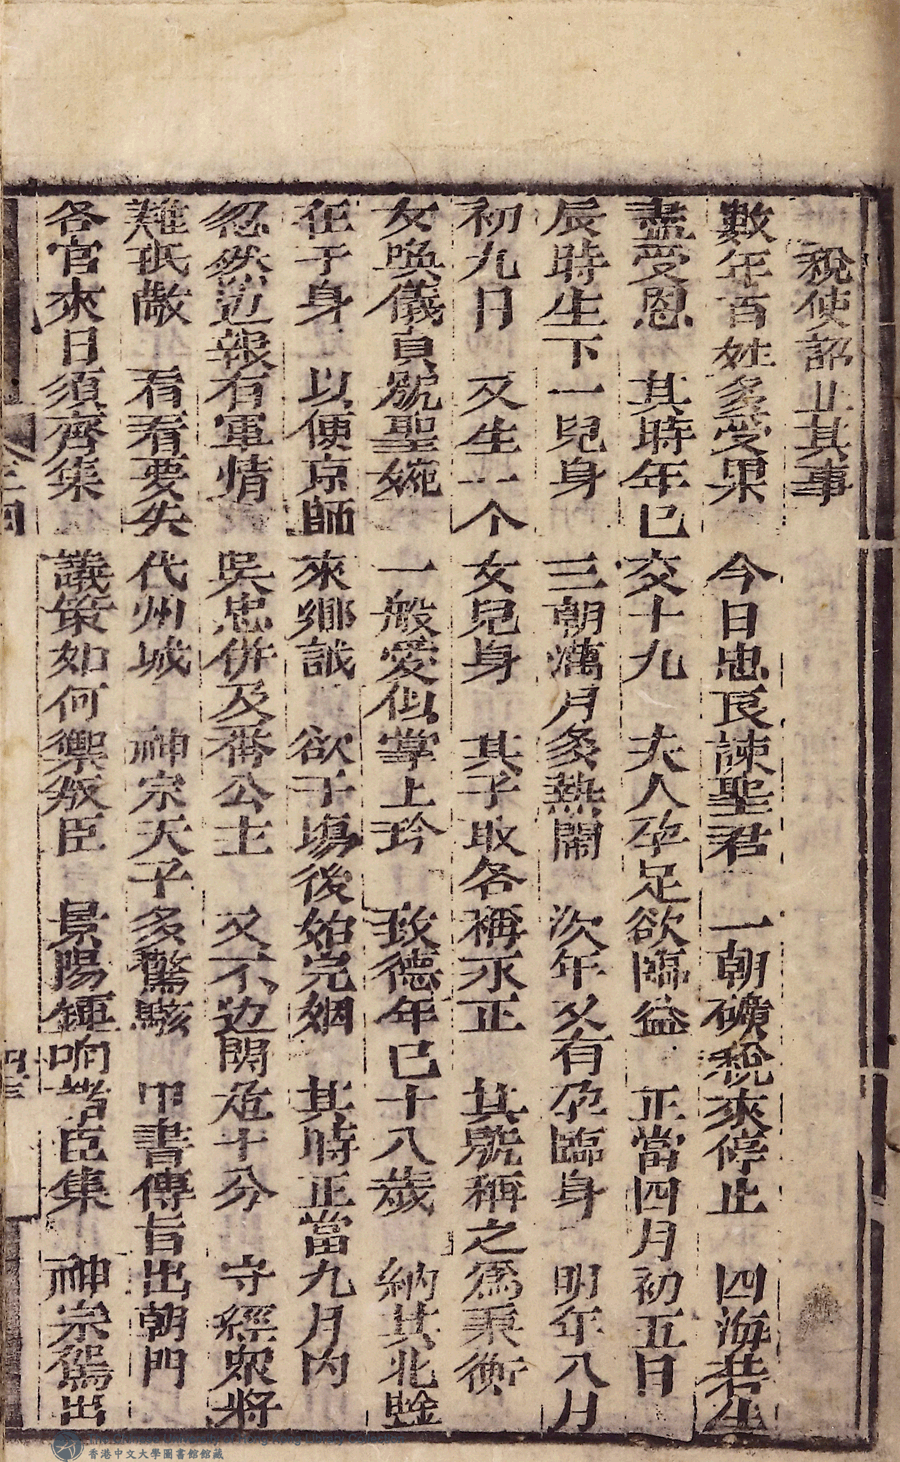 稅使詔止其事
數年百姓多受累 今日忠良諫聖君 一朝礦稅來停止 四海君生
盡受恩 其時年已交十九 夫人孕足欲臨盆 正當四月初五日
辰時生下一兒身 三朝滿月多熱閙 次年又有孕臨身 明年八月
初九日 又生一个女兒身 其子取名稱永正 其號稱之爲秉衡
女喚儀貞號聖婉 一般愛似掌上珍 政德年已十八歲 納其北
在于身 以便京師來鄉試 欲于塲後始完姻 其時正當九月內
忽然边報有軍情 吳忠併及番公主 又不边関危十分 守經衆將
難抵敵 看看要失代州城 神宗天子多驚駭 書傳旨出朝門
各官來日須齊集 議策如何禦叛臣 景陽鍾响諸臣集 神宗駕出
香港中文大學圖書館館藏